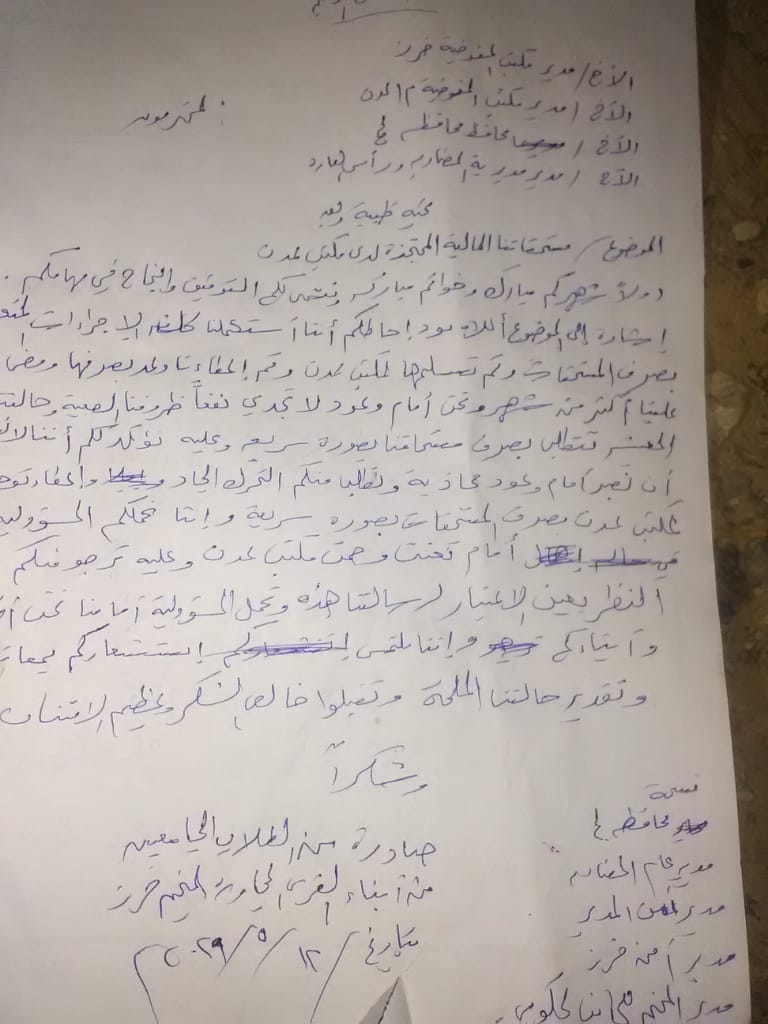 الأخ / مدير مكتب المفوضية خرز
الأخ / مدير مكتب المفوضية م عدن
المحترمون :
الأخ / محافظ محافظة لحج
الأخ / مدير مديرية المضاربه ورأس العاره
تحية طيبة وبعد
الموضوع / مستحقاتنا المالية المحتجزة لدى مكتب عدن
اولاً شهركم مبارك وخواتم مباركه ونتمنى لكم التوفيق والنجاح في مهامكم .
إشارة إلى الموضوع أعلاه نود إحاطتكم أننا أستكملنا كافة الإجراءات
بصرف المستحقات وتم تسليمها لمكتب عدن وتم إلغاءنا ولم يصرفها ومضى
علينا أكثر من شهر ونحن أمام وعود لا تجدي نفعاً ظروفنا الصعبة وحالتنا
تتطلب بصرف مستحقاتنا بصوره سريعه وعليه نؤكد لكم أننا
أن نصبر أمام وعود كاذبة ونطلب منكم التحرك الجاد وإعطاء
لمكتب عدن بصرف المستحقات بصوره سريعة وإننا نحملكم المسؤولية
أمام تعنت وصمت مكتب عدن وعليه نرجو منكم
النظر بعين الإعتبار لرسالتنا هذه وتحمل المسؤولية أمامنا نحن
وأبناءكم وإننا نلتمس إستشعاركم
وتقدير حالتنا الملحة وتقبلوا خالص الشكر وعظيم الامتنان
وشكراً
نسخة
محافظ لحج
صادرة من الطلاب الجامعيين
مدير عام المضاربه
من أبناء القرى المجاورة لمخيم خرز
مدير أمن المديرية
بتاريخ / ١٢ / ٥ / ٢٠٢٩م
مدير أمن خرز
مدير المخيم الحكومي.